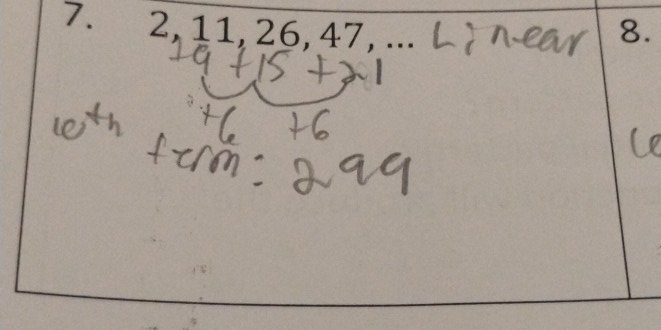 7. 2, 11, 26, 47, ... Linear 8.
+9 +15 +21
+6 +6
10th term: 299